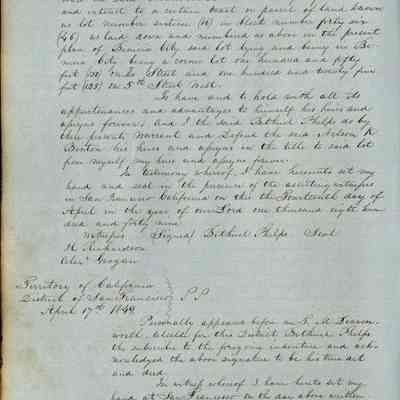 and interest to a certain tract or parcel of land known
as lot number sixteen (16) in block number forty six
(46) as laid down and numbered as above in the present
plan of Benicia City said lot lying and being in Be-
nicia City being a corner lot one hundred and fifty
feet (150) on Street and one hundred and twenty five
feet (125) on 5th Street West.
To have and to hold with all its
appurtenances and advantages to himself his heirs and
assigns forever, and I the said Bethuel Phelps do by
these presents, Warrent and Defend the said Nelson K
his heirs and assigns in the title to said lot
from myself my heirs and assigns forever.
In testimony whereof I have hereunto set my
hand and seal in the presence of the assisting witnesses
in San Francisco California on this the Fourteenth day of
April in the year of our Lord one thousand eight hun
dred and forty nine
Witnesses Signed Bethuel Phelps Seal
H Richardson
Alex Grogan
Territory of California
District of San Francisco S.S.
April 17th 1849
Personally appeared before me
worth, Alcalde for this District Bethuel Phelps
the subscriber to the foregoing indenture and ack-
nowledged the above signature to be his true act
and deed
In witness whereof I have hereto set my
hand at San Francisco on the day above written